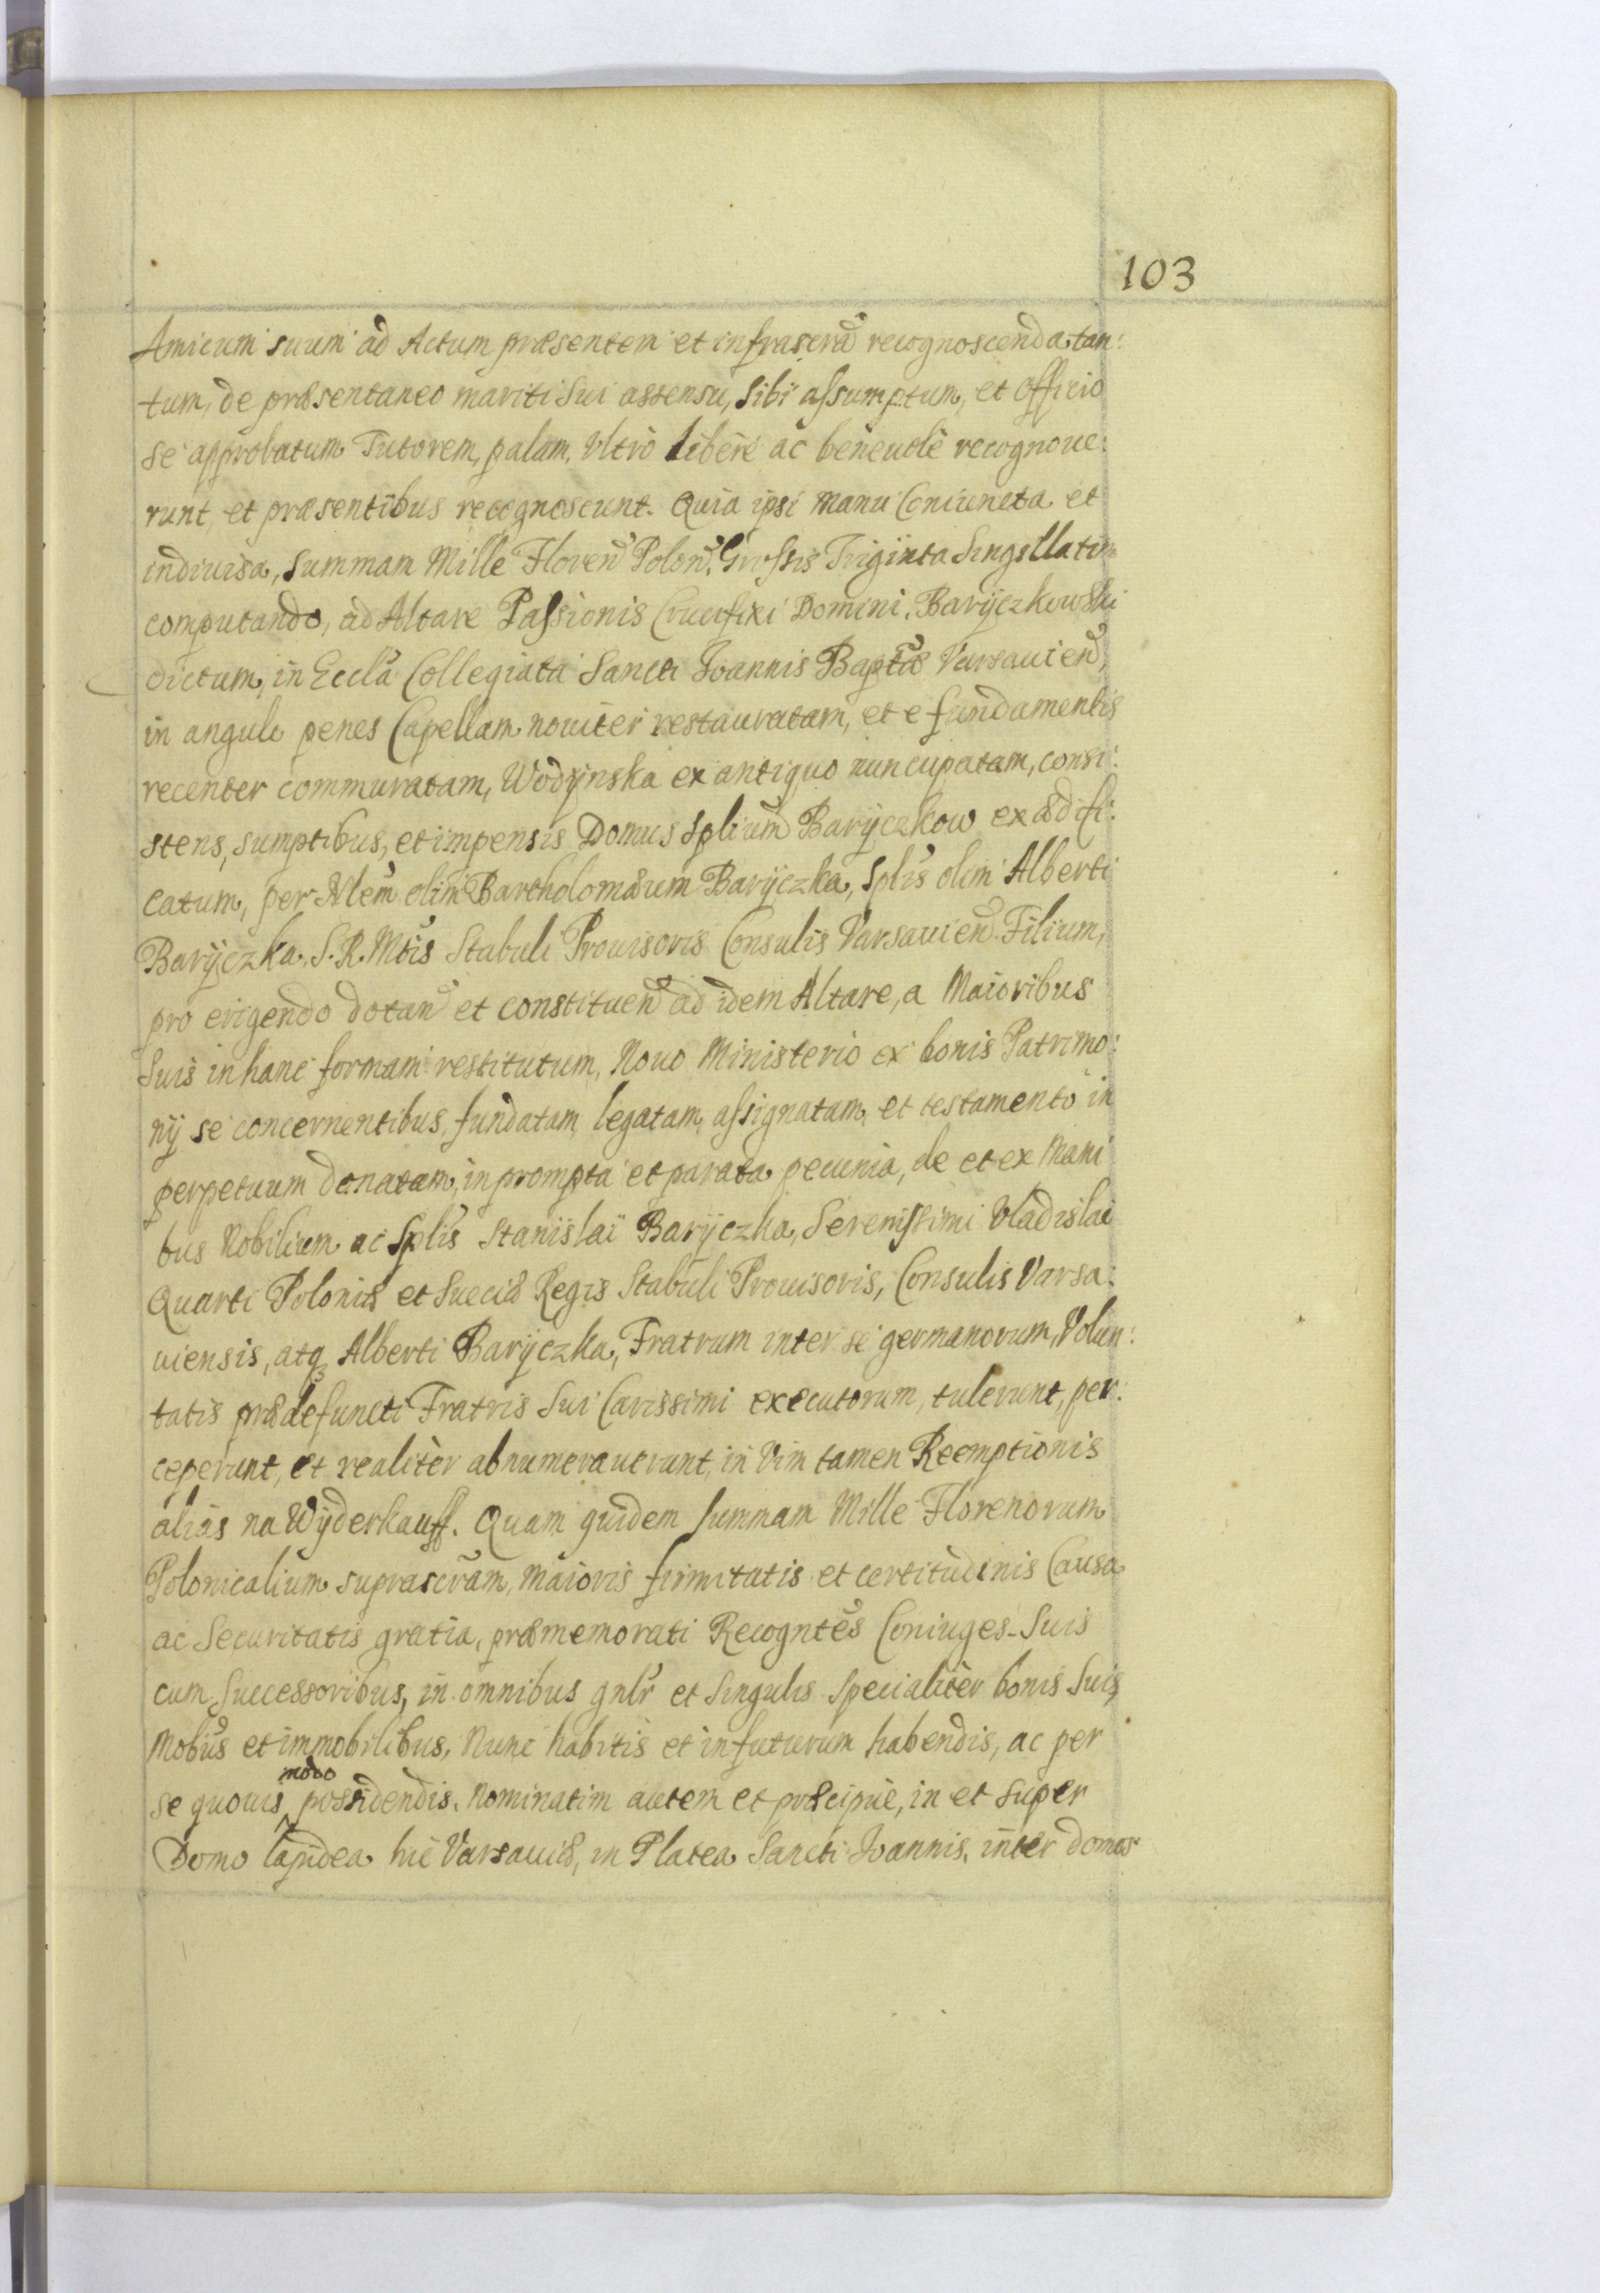 103
Amicum suum ad Actum præsentem et infrascrã recognoscenda tan:
tum, de præsentaneo mariti sui assensu, sibi assumptum, et Officio
se approbatum Tutorem, palam, Vltrò liberè ac beneuolè recognoue:
runt, et præsentibus recognoscunt. Quia ipsi manu Coniuncta et
indiuisa, summam Mille Floren Polon, Grossis Triginta Singillatim
computando, ad Altare Passionis Crucifixi Domini, Baryczkowski
dictum, in Eccla Collegiata Sancti Joannis Baptæ Varsauien,
in angulo penes Capellam nouiter restauratam, et e fundamentis
recenter commuratam, Wodynska ex antiquo nuncupatam, consi:
stens, sumptibus, et impensis Domus Splium Baryczkow exædifi:
catum, per Nlem olim Bartholomæum Baryczka, Splis olim Alberti
Baryczka S. R. Mtis Stabuli Prouisoris Consulis Varsauien Filium,
pro erigendo dotan et constituen ad idem Altare, a Maioribus
suis in hanc formam restitutum, Nouo Ministerio ex bonis Patrimo:
nij se concernentibus, fundatam, legatam, assignatam, et testamento in
perpetuum donatam, in prompta et parata pecunia, de et ex Mani
bus Nobilium ac Splis Stanislai Baryczka, Serenissimi Vladislai
Quarti Poloniæ et Sueciæ Regis Stabuli Prouisoris, Consulis Varsa:
uiensis, atq Alberti Baryczka, Fratrum inter se germanorum, Volun:
tatis prædefuncti Fratris Sui Carissimi executorum, tulerunt, per:
ceperunt, et realitèr abnumerauerunt, in Vim tamen Reemptionis
aliàs na Wyderkauff. Quam quidem summam Mille Florenorum
Polonicalium suprascram, maioris firmitatis et certitudinis Causa
ac Securitatis gratia, præmemorati Recogntes Coniuges Suis
cum Successoribus, in omnibus gnlr et Singulis Specialitèr bonis Suis
Mobus et immobilibus, Nunc habitis et in futurum habendis, ac per
se quouis modo possidendis. Nominatim autem et præcipuè, in et super
Domo lapidea hìc Varsauiæ, in Platea Sancti Joannis, inter domos